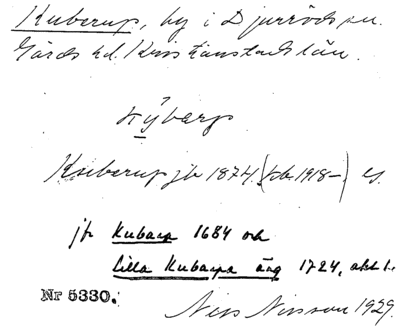 Kuberup, by i Djurröds sn.
Gärds hd. Kristianstads län.
kỳbarp
Kuberup jb 1874. (jb. 1918–) es.
jfr Kubarp 1684 och
Lilla Kubarpa äng 1724, akt 1.
Nr 5330.
Nils Nilsson 1929.